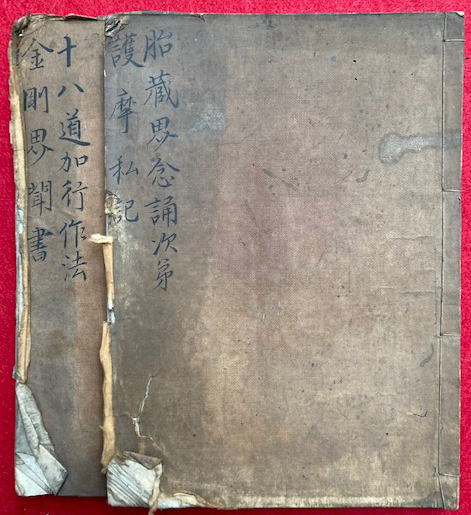 胎藏界念誦次第
護摩私記
十八道加行作法
金剛界聞書